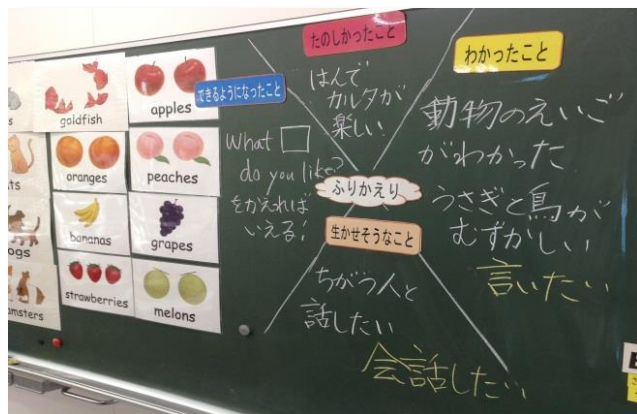 goldfish
apples
oranges
peaches
bananas
grapes
strawberries
melons
できるようになったこと
What □
do you like?
をかえれば
いえる!
たのしかったこと
はんで
カルタが
楽しい
わかったこと
動物のえいご
がわかった
うさぎと鳥が
むずかしい
言いたい
ふりかえり
生かせそうなこと
ちがう人と
話したい
会話したい